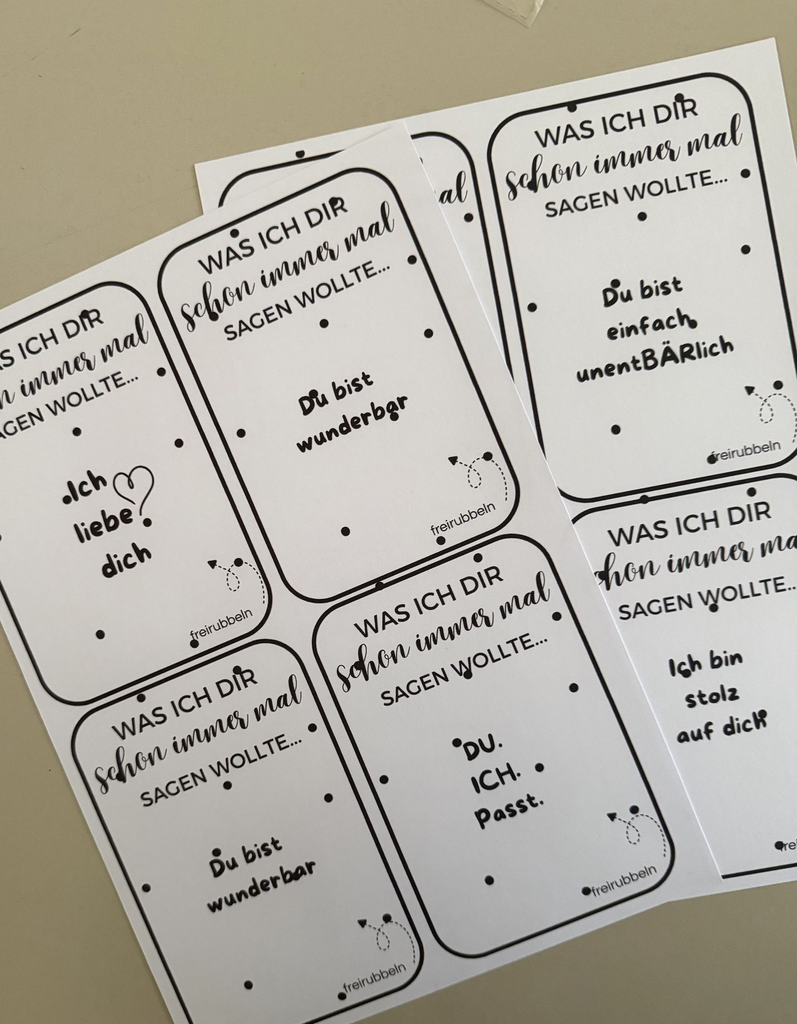 WAS ICH DIR
schon immer mal
SAGEN WOLLTE...
Ich
liebe
dich
freirubbeln
WAS ICH DIR
schon immer mal
SAGEN WOLLTE...
Du bist
wunderbar
freirubbeln
WAS ICH DIR
schon immer mal
SAGEN WOLLTE...
Du bist
wunderbar
freirubbeln
WAS ICH DIR
schon immer mal
SAGEN WOLLTE...
DU.
ICH.
Passt.
freirubbeln
al
WAS ICH DIR
schon immer mal
SAGEN WOLLTE...
Du bist
einfach
unentBÄRlich
freirubbeln
WAS ICH DIR
schon immer ma
SAGEN WOLLTE...
Ich bin
stolz
auf dich
frei